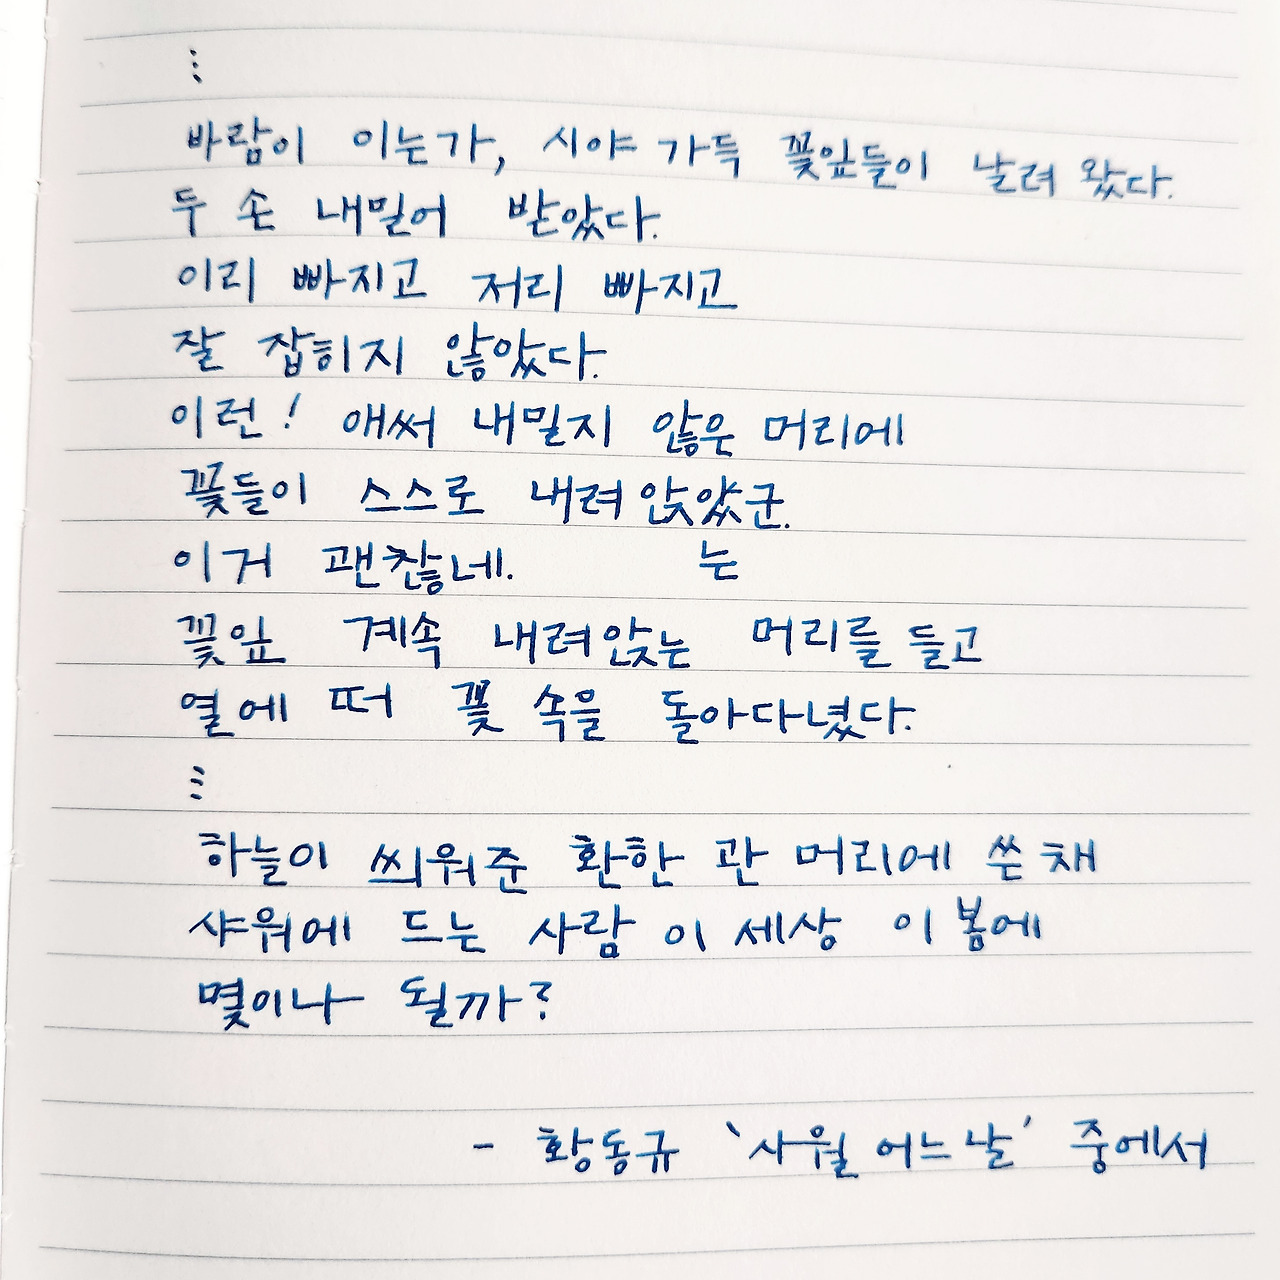 ⋮
바람이 이는가, 시야 가득 꽃잎들이 날려 왔다.
두 손 내밀어 받았다.
이리 빠지고 저리 빠지고
잘 잡히지 않았다.
이런! 애써 내밀지 않은 머리에
꽃들이 스스로 내려앉았군.
이거 괜찮네. 는
꽃잎 계속 내려앉는 머리를 들고
열에 떠 꽃 속을 돌아다녔다.
⋮
하늘이 씌워준 환한 관 머리에 쓴 채
샤워에 드는 사람 이 세상 이 봄에
몇이나 될까?
- 황동규 '사월 어느 날' 중에서